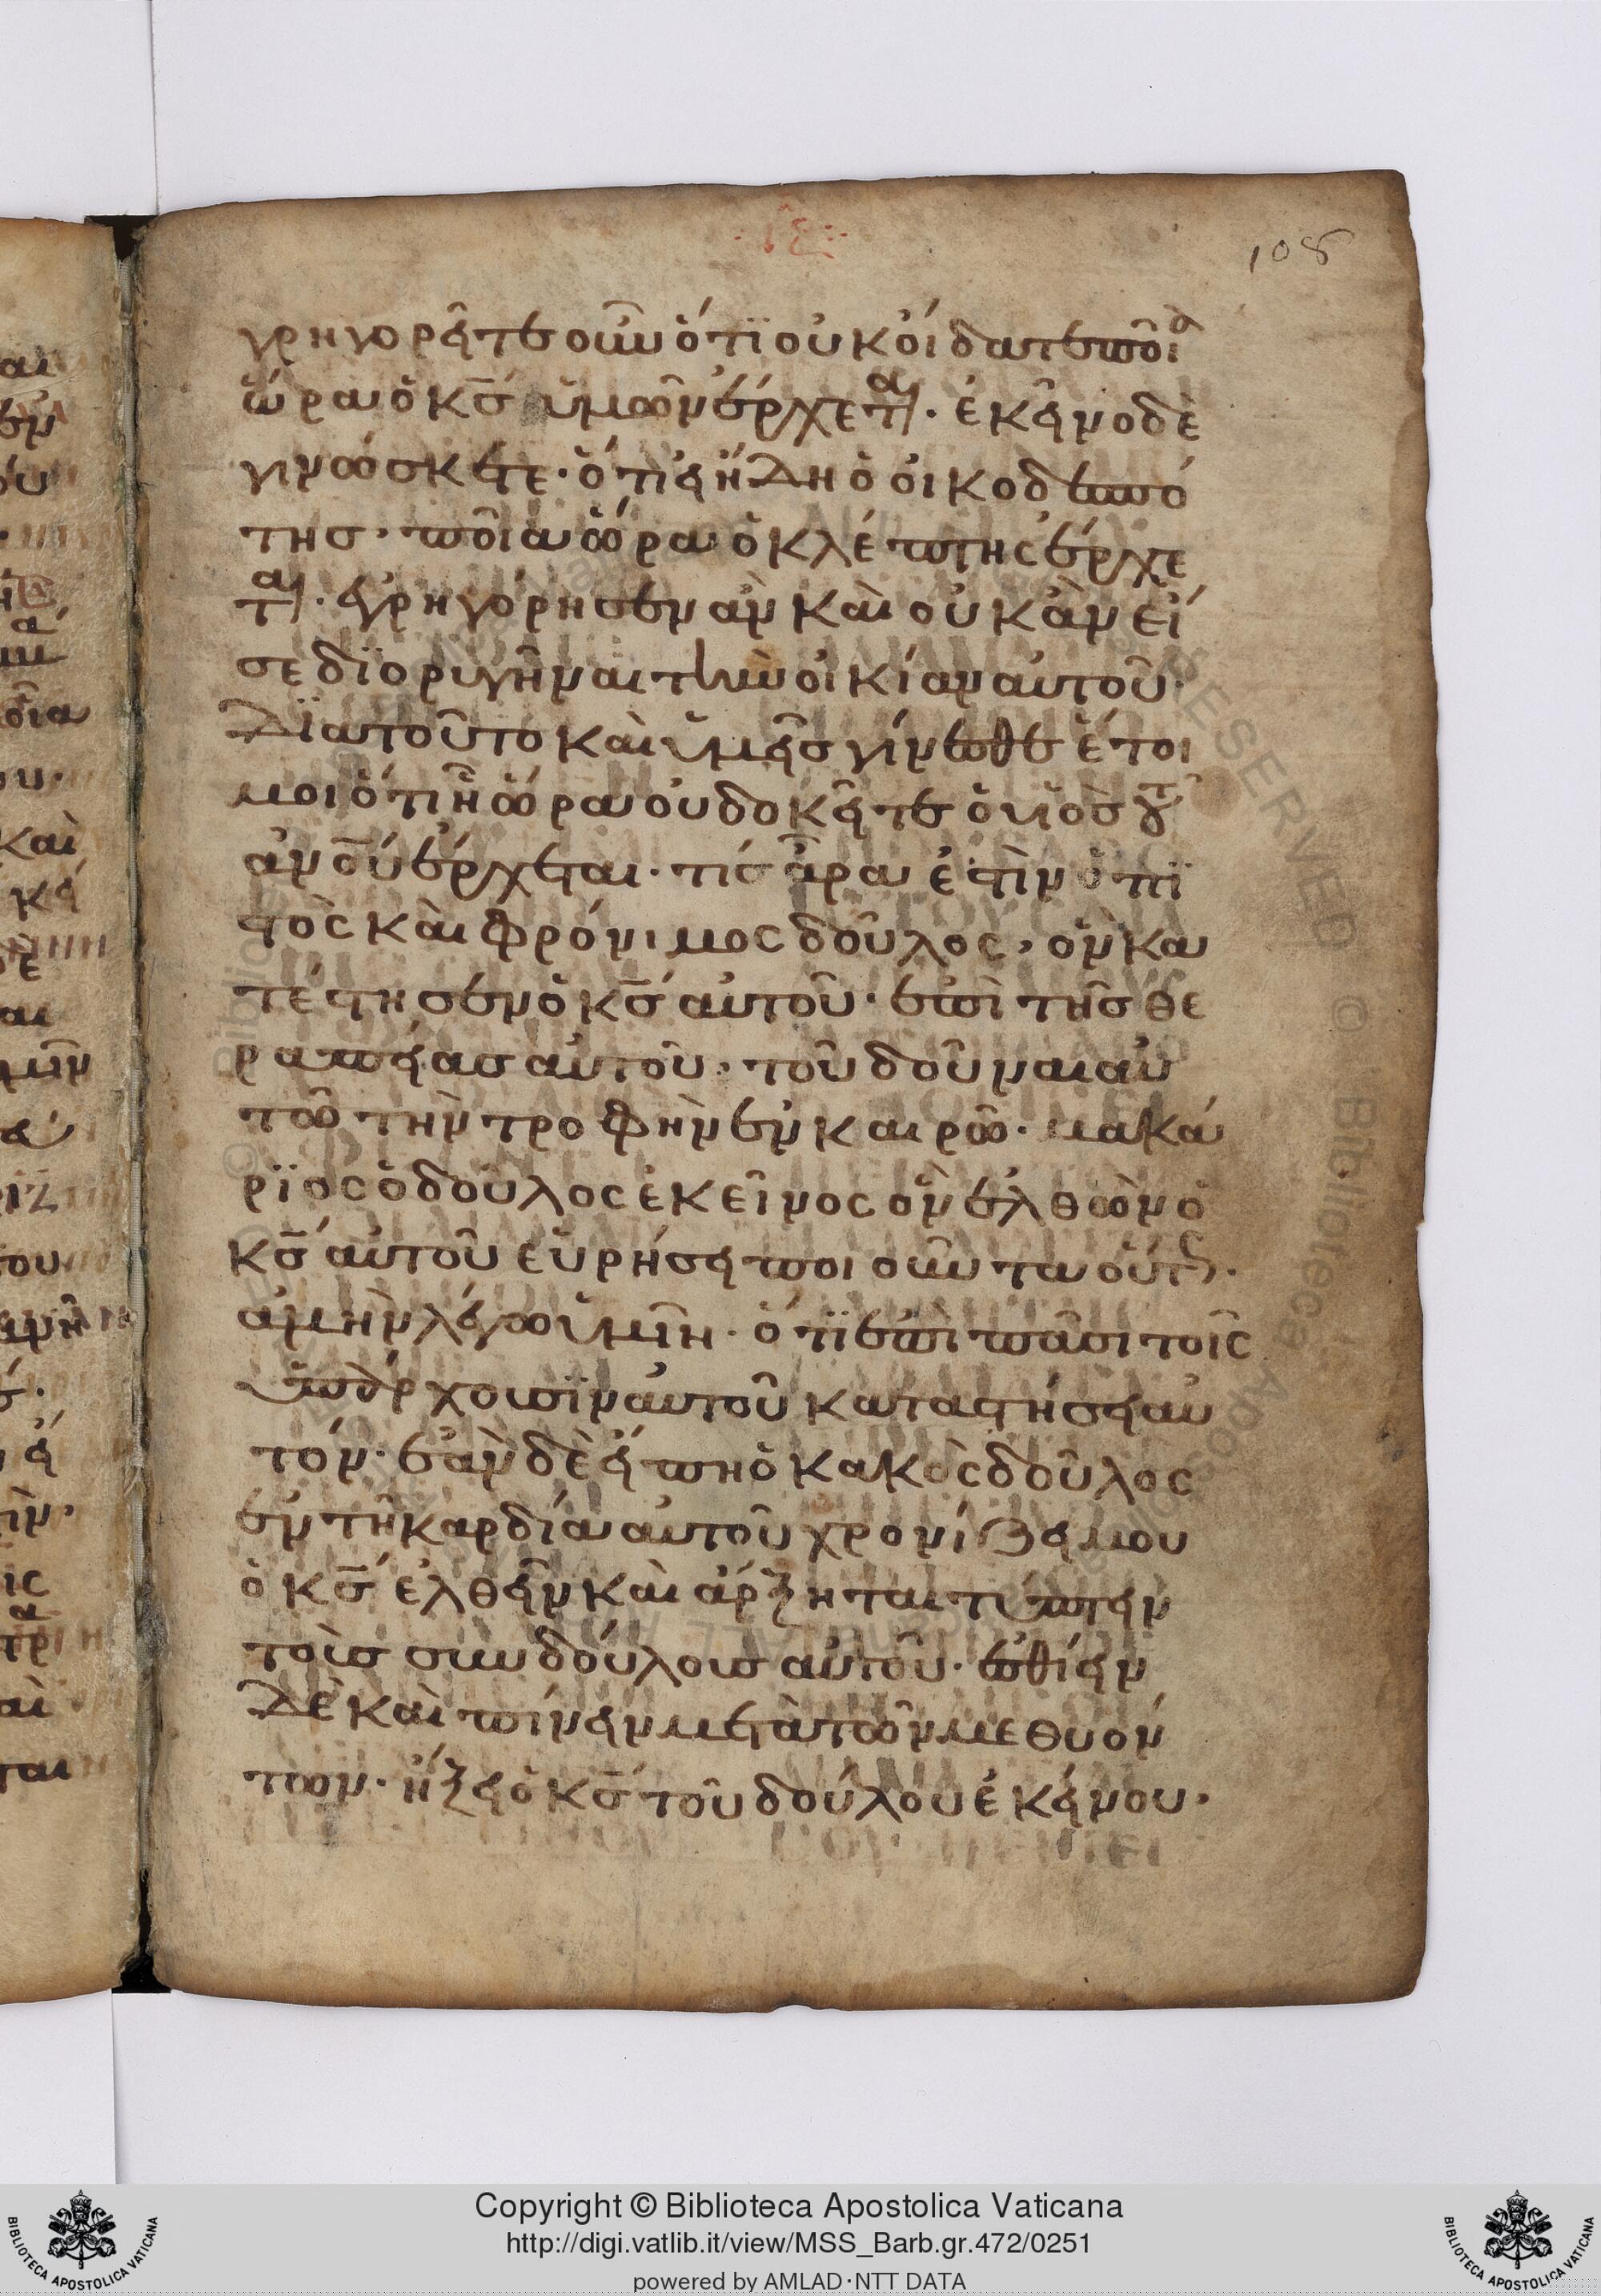 108
γρηγορεῖτε οὖν ὅτϊ οὐκ οἴδατε ποῖα
ὥρα ὁ κ̅ς ὑμῶν ἔρχεται· ἐκεῖνο δὲ
γινώσκετε· ὅτι εἰ ἤδη ὁ οἰκοδεσπό
της· ποῖα ὥρα ὁ κλέπτης ἔρχε
ται· ἐγρηγόρησεν ἂν καὶ οὐκ ἂν εἴ
σε διορυγῆναι τὴν οἰκίαν αὐτοῦ·
Διατοῦτο καὶ ὑμεῖς γίνεσθε ἕτοι
μοι ὅτι ἧ ὥρα οὐ δοκεῖτε ὁ υἱὸς τοῦ
ἀν̅ου ἔρχεται· τίς ἆρα ἐστὶν ὁ πϊ
στὸς καὶ φρόνιμος δοῦλος, ὃν κα
τέστησεν ὁ κ̅ς αὐτοῦ· ἐπὶ τῆς θε
ραπείας αὐτοῦ· τοῦ δοῦναι αὐ
τῶ τὴν τροφὴν ἐν καιρῶ· μακά
ρϊος ὁ δοῦλος ἐκεῖνος ὃν ἐλθὼν ὁ
κ̅ς αὐτοῦ εὑρήσει ποιοῦντα οὕτως·
ἀμὴν λέγω ὑμῖν· ὅτϊ ἐπὶ πᾶσι τοῖς
ὑπάρχουσϊν αὐτοῦ καταστήσει αὐ
τόν· ἐὰν δὲ εἴπη ὁ κακὸς δοῦλος
ἐν τῆ καρδία αὐτοῦ χρονίζει μου
ὁ κ̅ς ἐλθεῖν καὶ ἄρξηται τύπτειν
τοὺς συνδούλους αὐτοῦ· ἐσθίειν
δὲ καὶ πίνειν μετὰ τῶν μεθυόν
των· ἥξει ὁ κ̅ς τοῦ δούλου ἐκείνου·
Copyright © Biblioteca Apostolica Vaticana
http://digi.vatlib.it/view/MSS_Barb.gr.472/0251
powered by AMLAD·NTT DATA
BIBLIOTECA APOSTOLICA VATICANA
BIBLIOTECA APOSTOLICA VATICANA